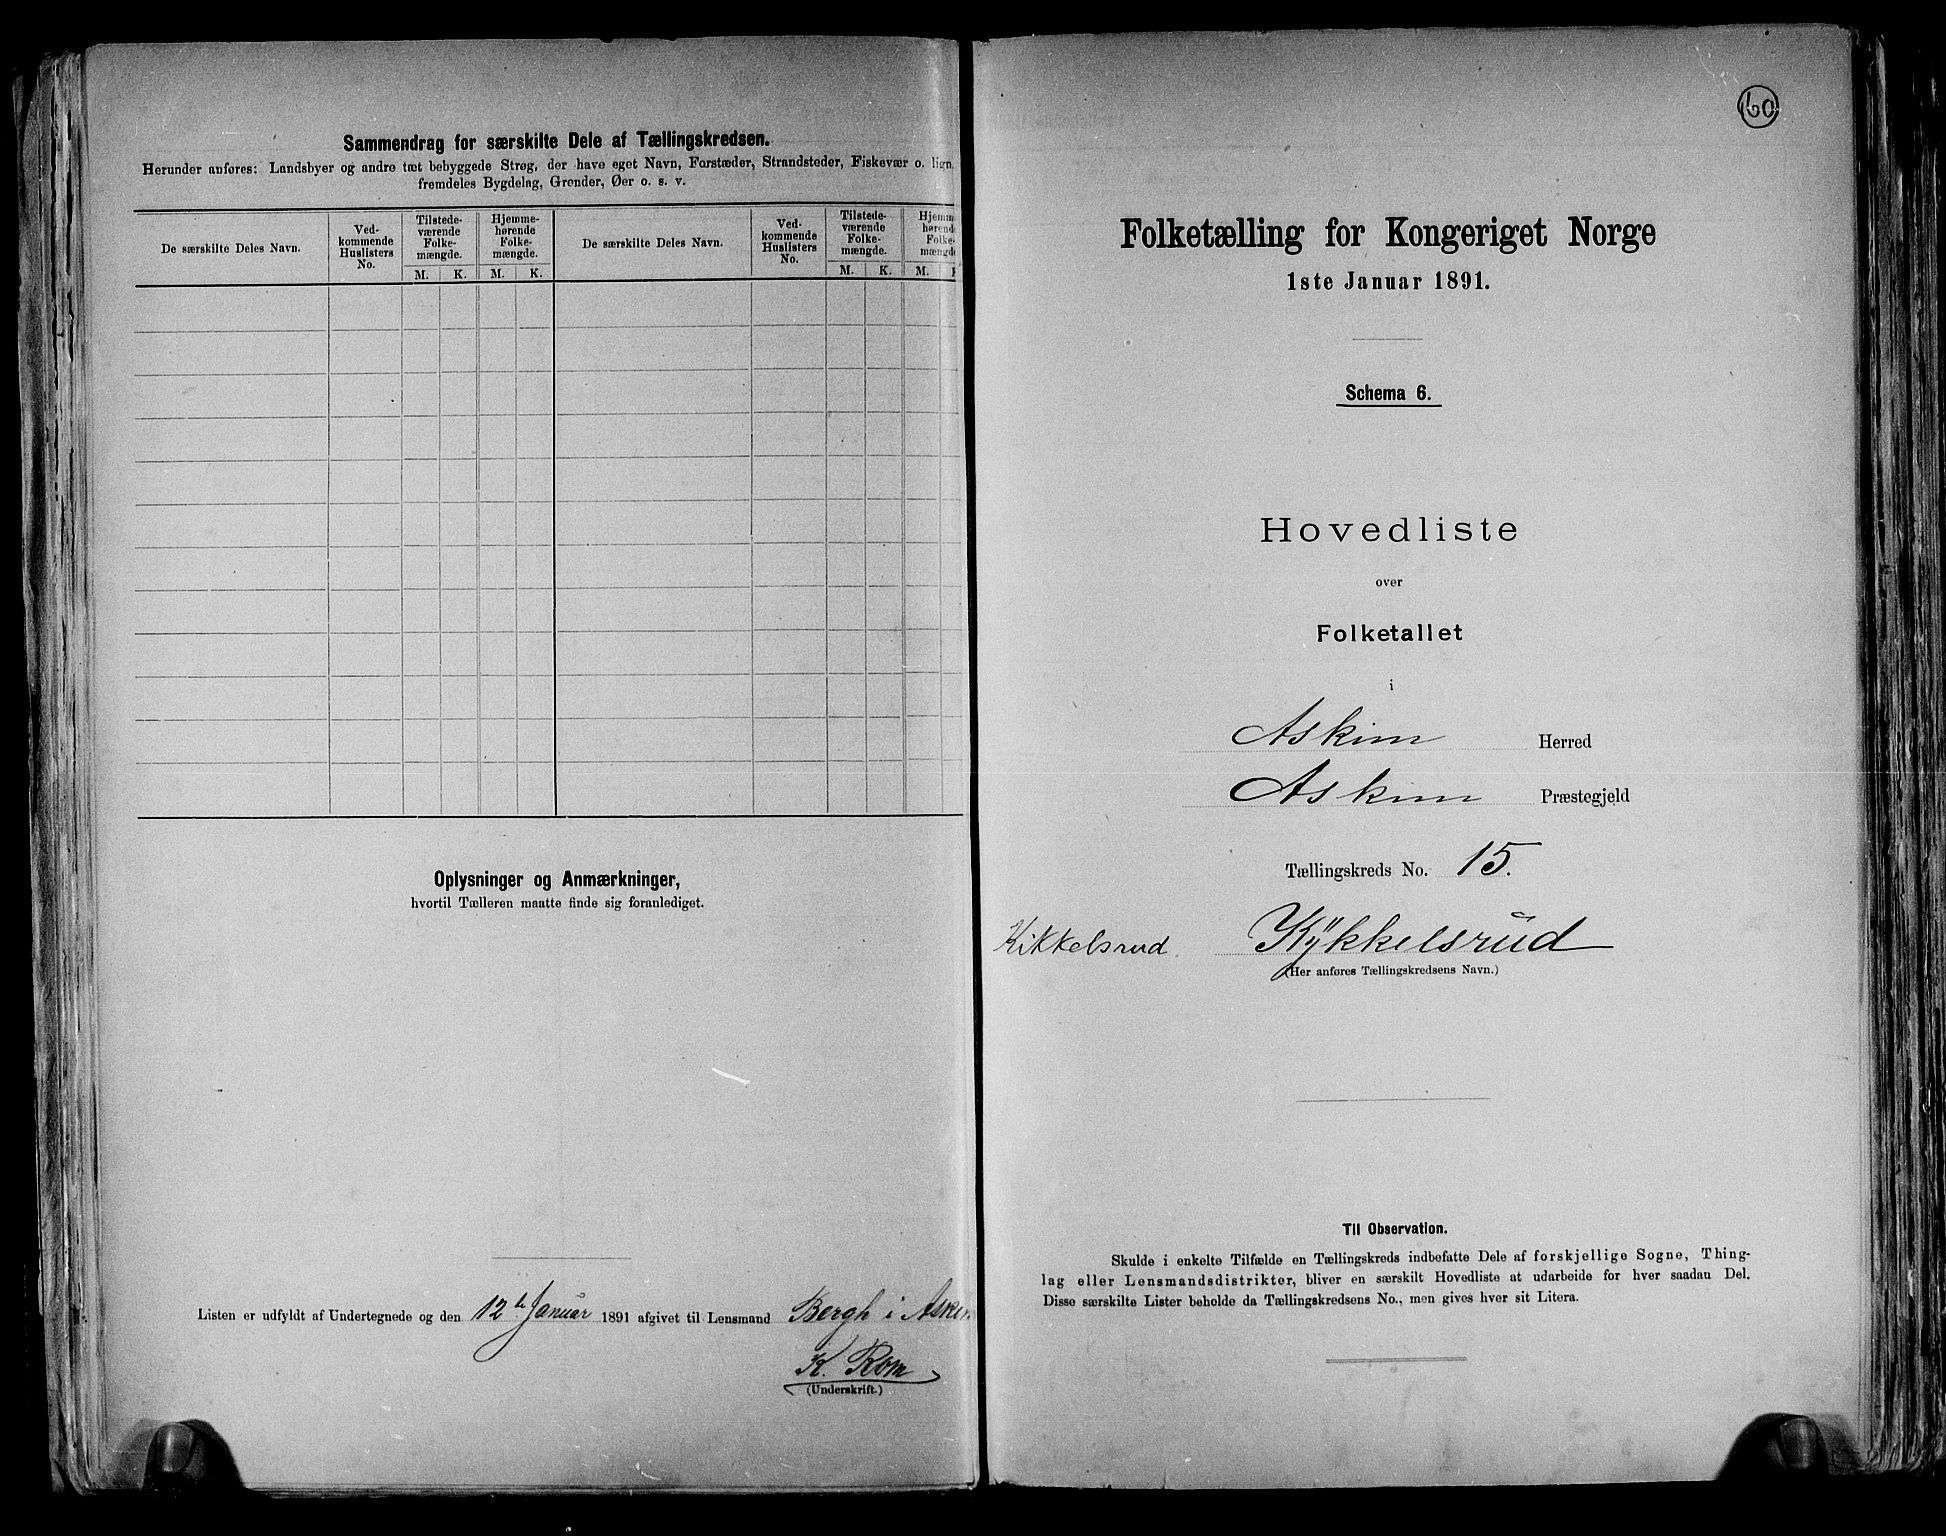 Sammendrag for særskilte Dele af Tællingskredsen.
Herunder anføres: Landsbyer og andre tæt bebyggede Strøg, der have eget Navn, Forstæder, Strandsteder, Fiskevær o. lign.
fremdeles Bygdelag, Grender, Øer o. s. v.
De særskilte Deles Navn.
Ved-
kommende
Huslisters
No.
Tilstede-
værende
Folke-
mængde.
M. K.
Hjemme-
hørende
Folke-
mængde.
M. K.
De særskilte Deles Navn.
Ved-
kommende
Huslisters
No.
Tilstede-
værende
Folke-
mængde.
M. K.
Hjemm
hørend
Folke-
mængde
M.
Oplysninger og Anmærkninger,
hvortil Tælleren maatte finde sig foranlediget.
Listen er udfyldt af Undertegnede og den 12te Januar 1891 afgivet til Lensmand Bergh i Askim
K. Rom
(Underskrift.)
60
Folketælling for Kongeriget Norge
1ste Januar 1891.
Schema 6.
Hovedliste
over
Folketallet
i
Askim Herred
Askim Præstegjeld
Tællingskreds No. 15.
Kikkelsrud. Kÿkkelsrud
(Her anføres Tællingskredsens Navn.)
Til Observation.
Skulde i enkelte Tilfælde en Tællingskreds indbefatte Dele af forskjellige Sogne, Thing-
lag eller Lensmandsdistrikter, bliver en særskilt Hovedliste at udarbeide for hver saadan Del.
Disse særskilte Lister beholde da Tællingskredsens No., men gives hver sit Litera.